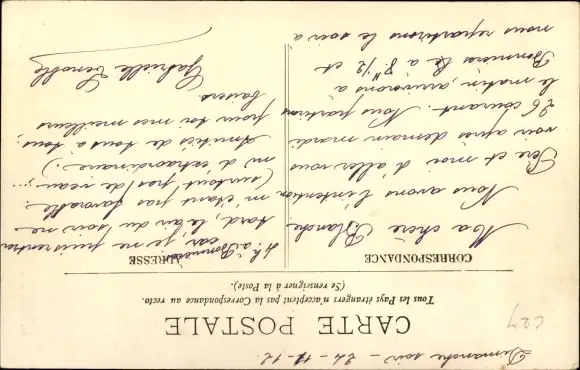 Dimanche soir - 24-11-12.
CARTE POSTALE
Tous les Pays étrangers n'acceptent pas la Correspondance au recto.
(Se renseigner à la Poste).
CORRESPONDANCE
ADRESSE
Ma chère Blanche
Nous avons l'intention
Père et moi d'aller vous
voir après demain mardi
26 courant. Nous partirons
le matin, arriverons à
Bonniers à 8h 1/2 et
nous repartirons le soir à
4h. à Bonniers
car, je ne puis rentrer
tard, le bain du soir ne
m'étant pas favorable.
(surtout pas de veau...,
ni d'extraordinaire.)
Amitiés de tous à tous;
pour toi mes meilleurs
baisers.
Gabrielle
C27